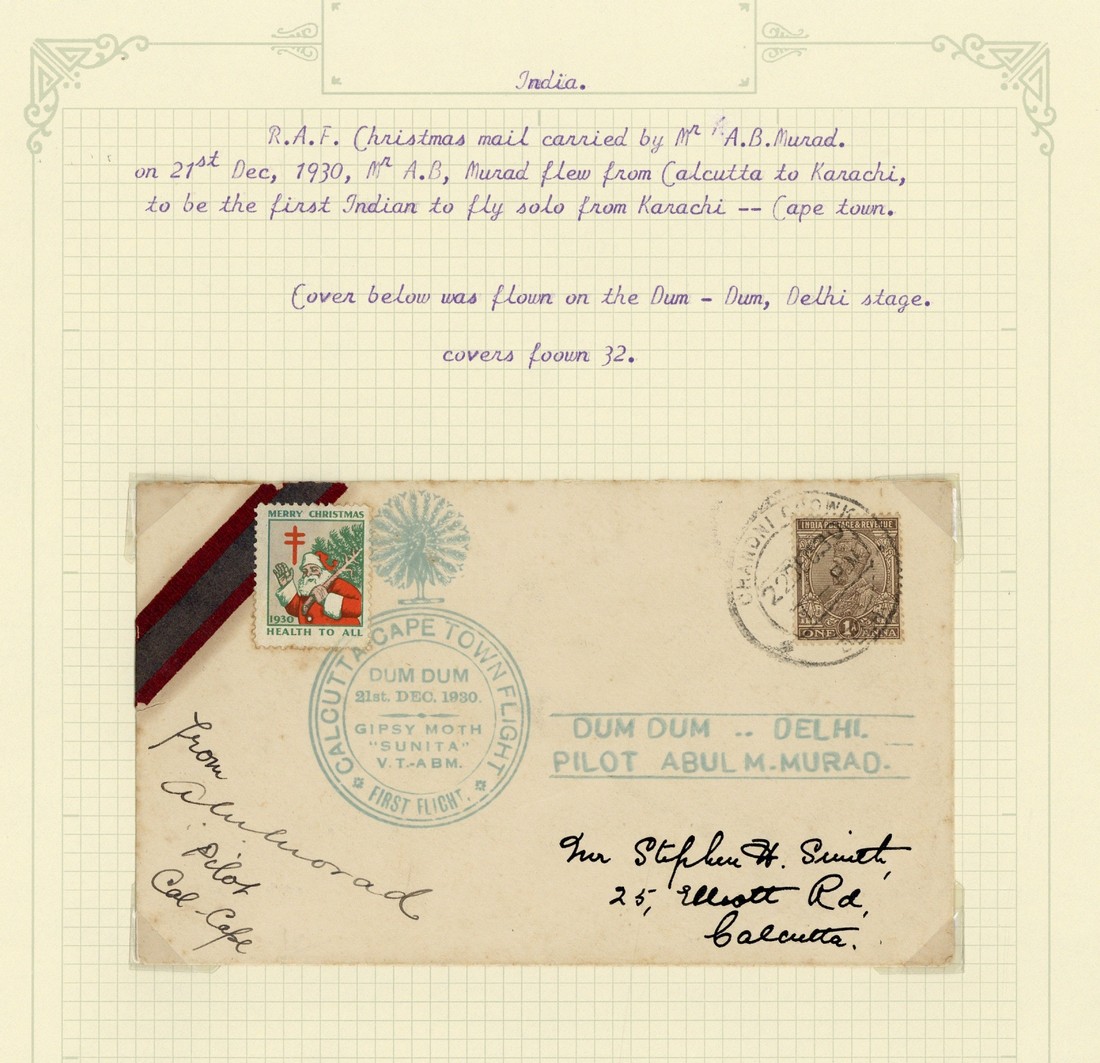 India.
R.A.F. Christmas mail carried by Mr A.B.Murad.
on 21st Dec, 1930, Mr A.B, Murad flew from Calcutta to Karachi,
to be the first Indian to fly solo from Karachi -- Cape town.
Cover below was flown on the Dum - Dum, Delhi stage.
covers foown 32.
MERRY CHRISTMAS
1930
HEALTH TO ALL
CHANDNI CHOWK
22 DEC 30
PM
DELHI
INDIA POSTAGE & REVENUE
ONE 1A ANNA
CALCUTTA CAPE TOWN FLIGHT
DUM DUM
21st. DEC. 1930.
GIPSY MOTH
"SUNITA"
V.T.-ABM.
FIRST FLIGHT.
DUM DUM -- DELHI.
PILOT ABUL M.-MURAD-
from
pilot
Cal-Cape
Mr Stephen H. Smith,
25, Elliott Rd,
Calcutta.